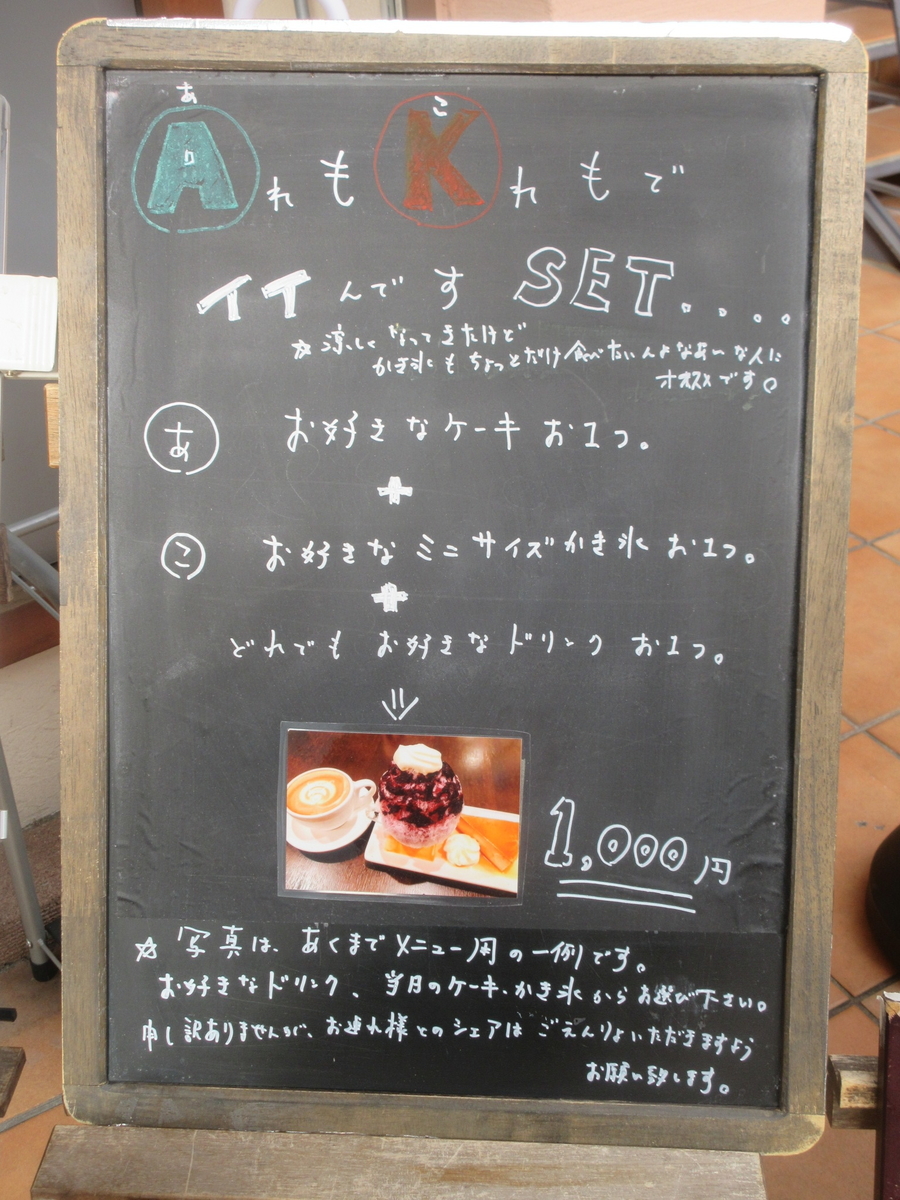 あ こ
AれもKれもで
イイんです SET....
☆涼しくなってきたけど
かき氷もちょっとだけ食べたいんよなあぃな人に
オススメです。
あ お好きなケーキお1つ。
+
こ お好きなミニサイズかき氷お1つ。
+
どれでもお好きなドリンクお1つ。
1,000円
☆写真は、あくまでメニュー用の一例です。
お好きなドリンク、当月のケーキ・かき氷からお選び下さい。
申し訳ありませんが、お連れ様とのシェアはごえんりょいただきますよう
お願い致します。